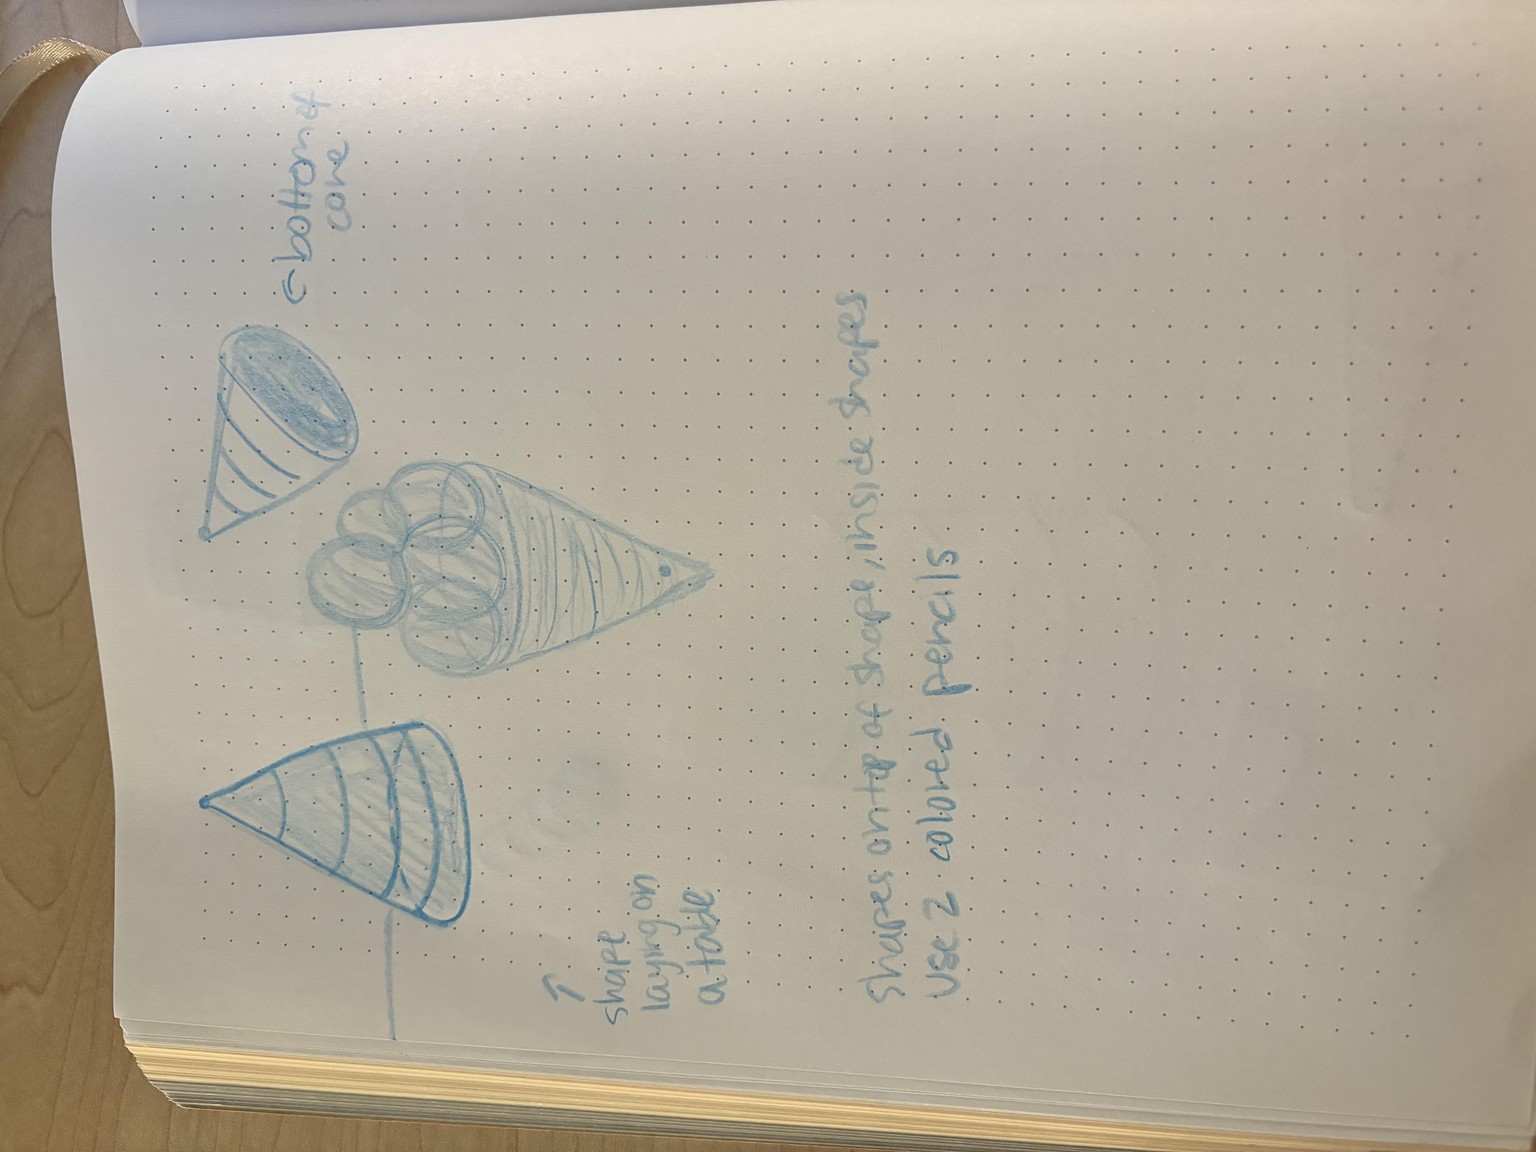 ← bottom of
cone
↑
shape
laying on
a table
shapes on top of shape, inside shapes
use 2 colored pencils